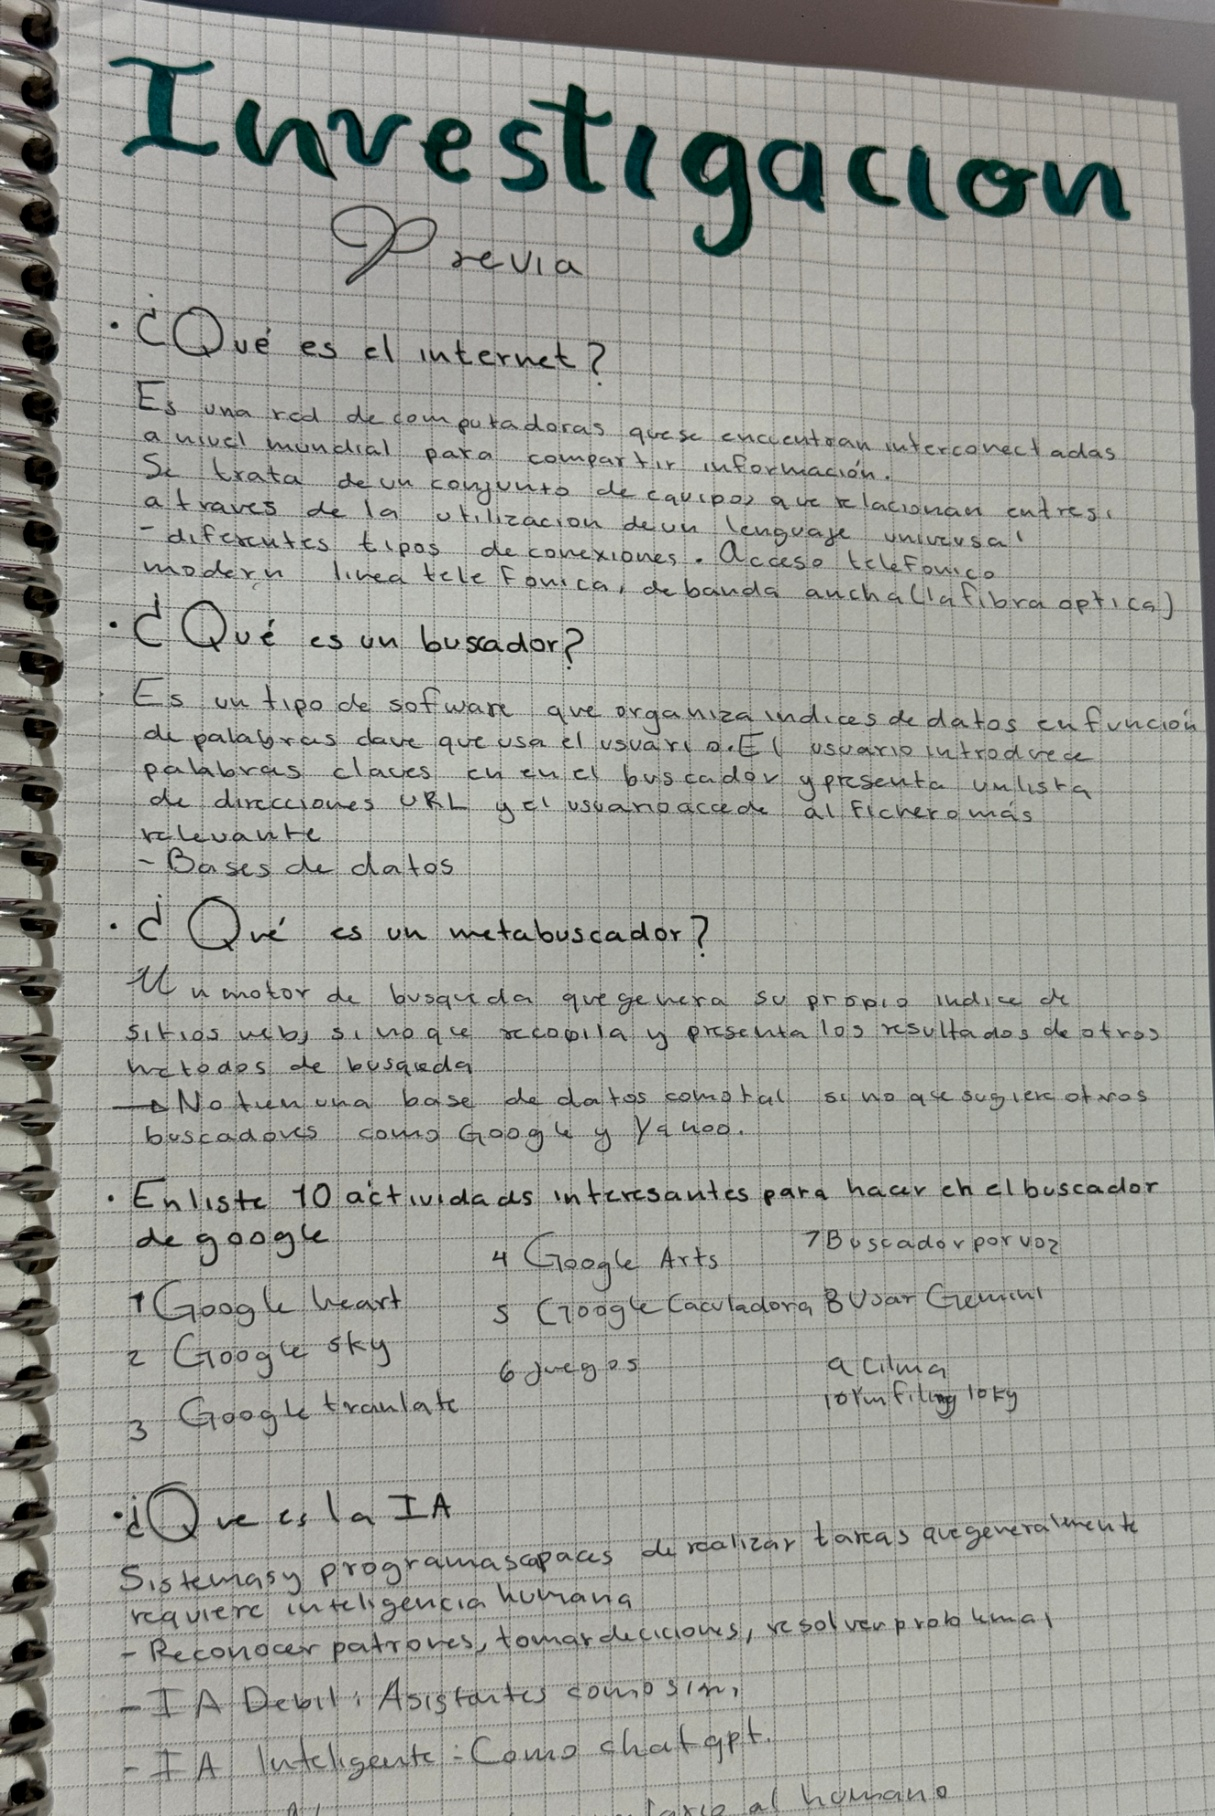 Investigacion
Previa
· ¿Qué es el internet?
Es una red de computadoras que se encuentran interconectadas
a nivel mundial para compartir información.
Se trata de un conjunto de equipos que relacionan entre si
a traves de la utilizacion de un lenguaje universal
- diferentes tipos de conexiones. Acceso telefonico
modern linea telefonica, de banda ancha (la fibra optica)
· ¿Qué es un buscador?
Es un tipo de sofware que organiza indices de datos en función
de palabras clave que usa el usuario. El usuario introduce
palabras claves en en el buscador y presenta un lista
de direcciones URL y el usuario accede al fichero más
relevante
- Bases de datos
· ¿Qué es un metabuscador?
Un motor de busqueda que genera su propio indice de
sitios web, si no que recopila y presenta los resultados de otros
metodos de busqueda
→ No tien una base de datos como tal si no que sugiere otros
buscadores como Google y Yahoo.
· Enliste 10 actividades interesantes para hacer en el buscador
de google
4 Google Arts
7 Buscador por voz
1 Google heart
5 Google Caculadora
8 Usar Gemini
2 Google sky
6 Juegos
9 Clima
3 Google tranlate
10
· ¿Que es la IA
Sistemas y programas capaces de realizar tareas que generalmente
requiere inteligencia humana
- Reconocer patrones, tomar deciciones, resolver problemas
- IA Debil: Asistantes como siri,
- IA Inteligente: Como chat gpt.
al humano